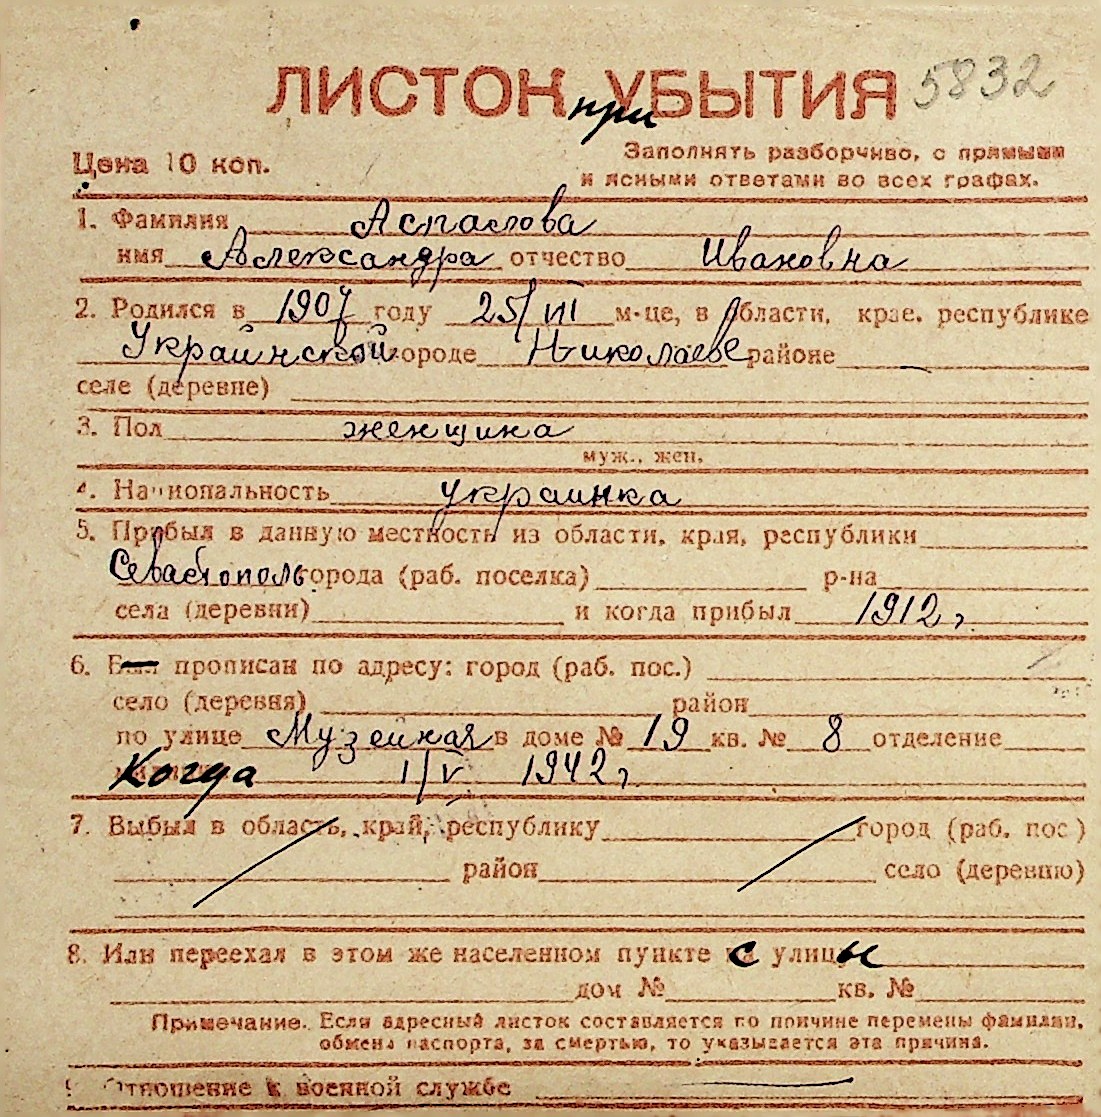 ЛИСТОК УБЫТИЯ 5832
при
Цена 10 коп.
Заполнять разборчиво, с прямыми
и ясными ответами во всех графах.
1. Фамилия Аспаслова
имя Александра отчество Ивановна
2. Родился в 1907 году 25/VIII м-це, в области, крае, республике
Украинской городе Николаеве районе
селе (деревне)
3. Пол женщина
муж., жен.
4. Национальность украинка
5. Прибыл в данную местность из области, края, республики
Севастополь города (раб. поселка) р-на
села (деревни) и когда прибыл 1912 г.
6. Был прописан по адресу: город (раб. пос.)
село (деревня) район
по улице Музейная в доме № 19 кв. № 8 отделение
Когда 1/V 1942 г.
7. Выбыл в область, край, республику город (раб. пос)
район село (деревню)
8. Или переехал в этом же населенном пункте с улицы
дом № кв. №
Примечание. Если адресный листок составляется по причине перемены фамилии,
обмена паспорта, за смертью, то указывается эта причина.
9. Отношение к военной службе